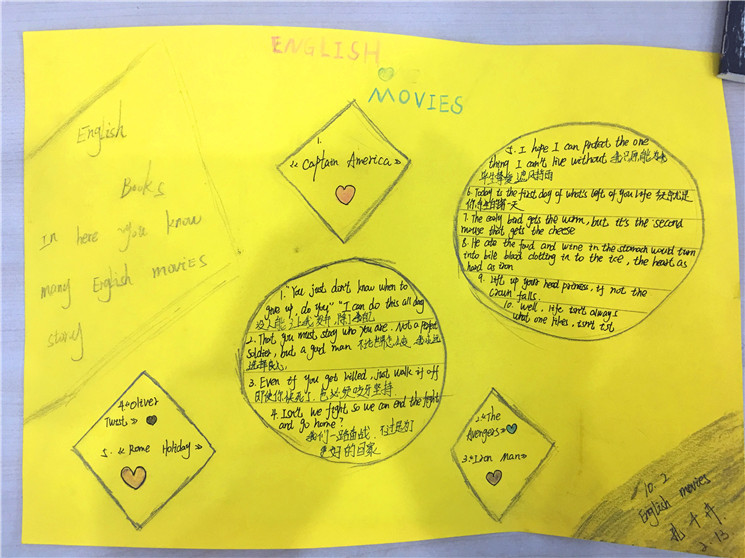 ENGLISH
MOVIES
English
Books
In here you know
many English movies
story
1.
《Captain America》
5. I hope I can protect the one
thing I can't live without
6. Today is the first day of what's left of you life
7. The early bird gets the worm, but it's the second
mouse that gets the cheese
8. He ate the food and wine in the stomach would turn
into bile blood clotting in to the ice, the heart as
hard as iron
9. Lift up your head princess, if not the
crown falls.
10. Well, life isn't always
what one likes, isn't it
1. "You just don't know when to
give up, do you" "I can do this all day
2. That you must stay who you are. Not a perfect
soldier, but a good man
3. Even if you get killed, just walk it off
即使你被死了, 也必须咬牙坚持
4. Isn't we fight, so we can end the fight
and go home?
我们一路血战, 不过是为了
更好的回家
4.《Oliver
Twist》
5.《Rome Holiday》
2.《The
Avengers》
3.《Iron Man》
10.2
English movies